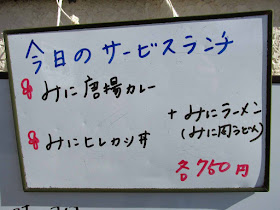 今日のサービスランチ
みに唐揚カレー
+ みにラーメン
(みに肉うどん)
みにヒレカツ丼
各750円